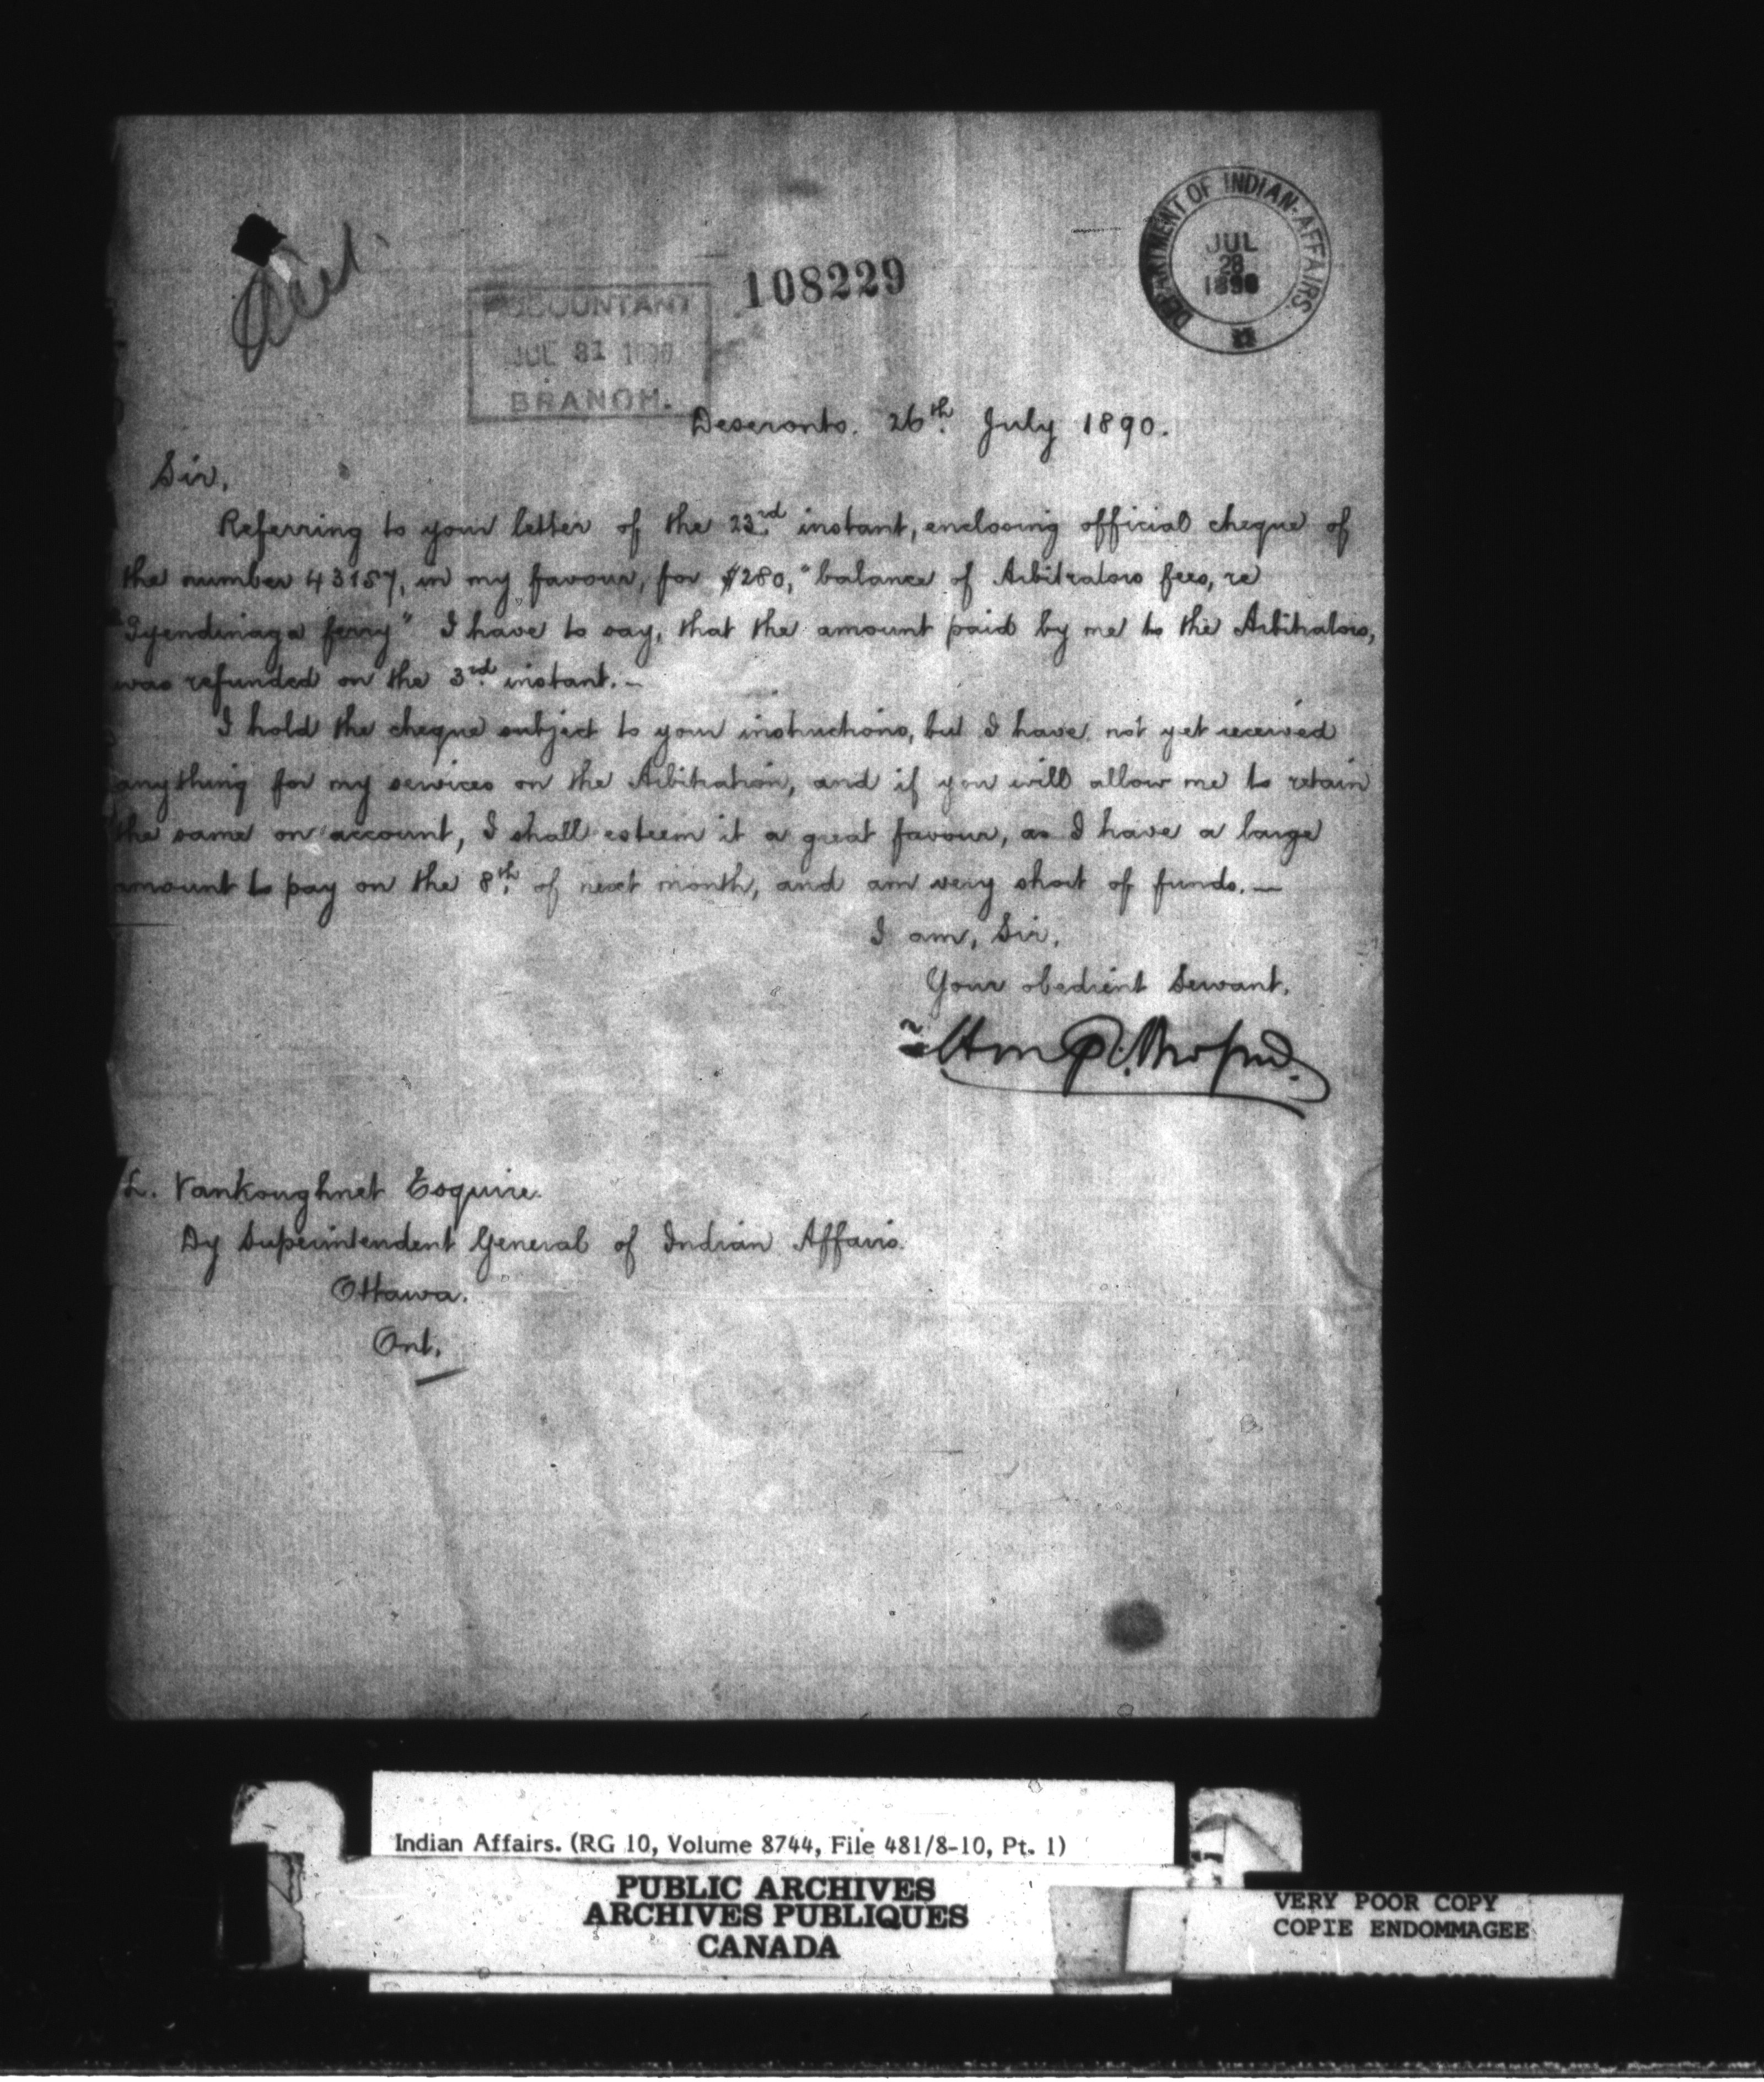 DEPARTMENT OF INDIAN AFFAIRS.
JUL
28
1890
108229
ACCOUNTANT
JUL 31 1890
BRANCH.
Deseronto. 26th July 1890.
Sir,
Referring to your letter of the 23rd instant, enclosing official cheque of
the number 43187, in my favour, for $280, "balance of Arbitrators fees, re
"Tyendinaga ferry" I have to say, that the amount paid by me to the Arbitrators,
was refunded on the 3rd instant. —
I hold the cheque subject to your instructions, but I have not yet received
anything for my services on the Arbitration, and if you will allow me to retain
the same on account, I shall esteem it a great favour, as I have a large
amount to pay on the 8th of next month, and am very short of funds. —
I am, Sir,
Your obedient Servant,
L. Vankoughnet Esquire.
Dy Superintendent General of Indian Affairs.
Ottawa.
Ont.
Indian Affairs. (RG 10, Volume 8744, File 481/8-10, Pt. 1)
PUBLIC ARCHIVES
ARCHIVES PUBLIQUES
CANADA
VERY POOR COPY
COPIE ENDOMMAGEE